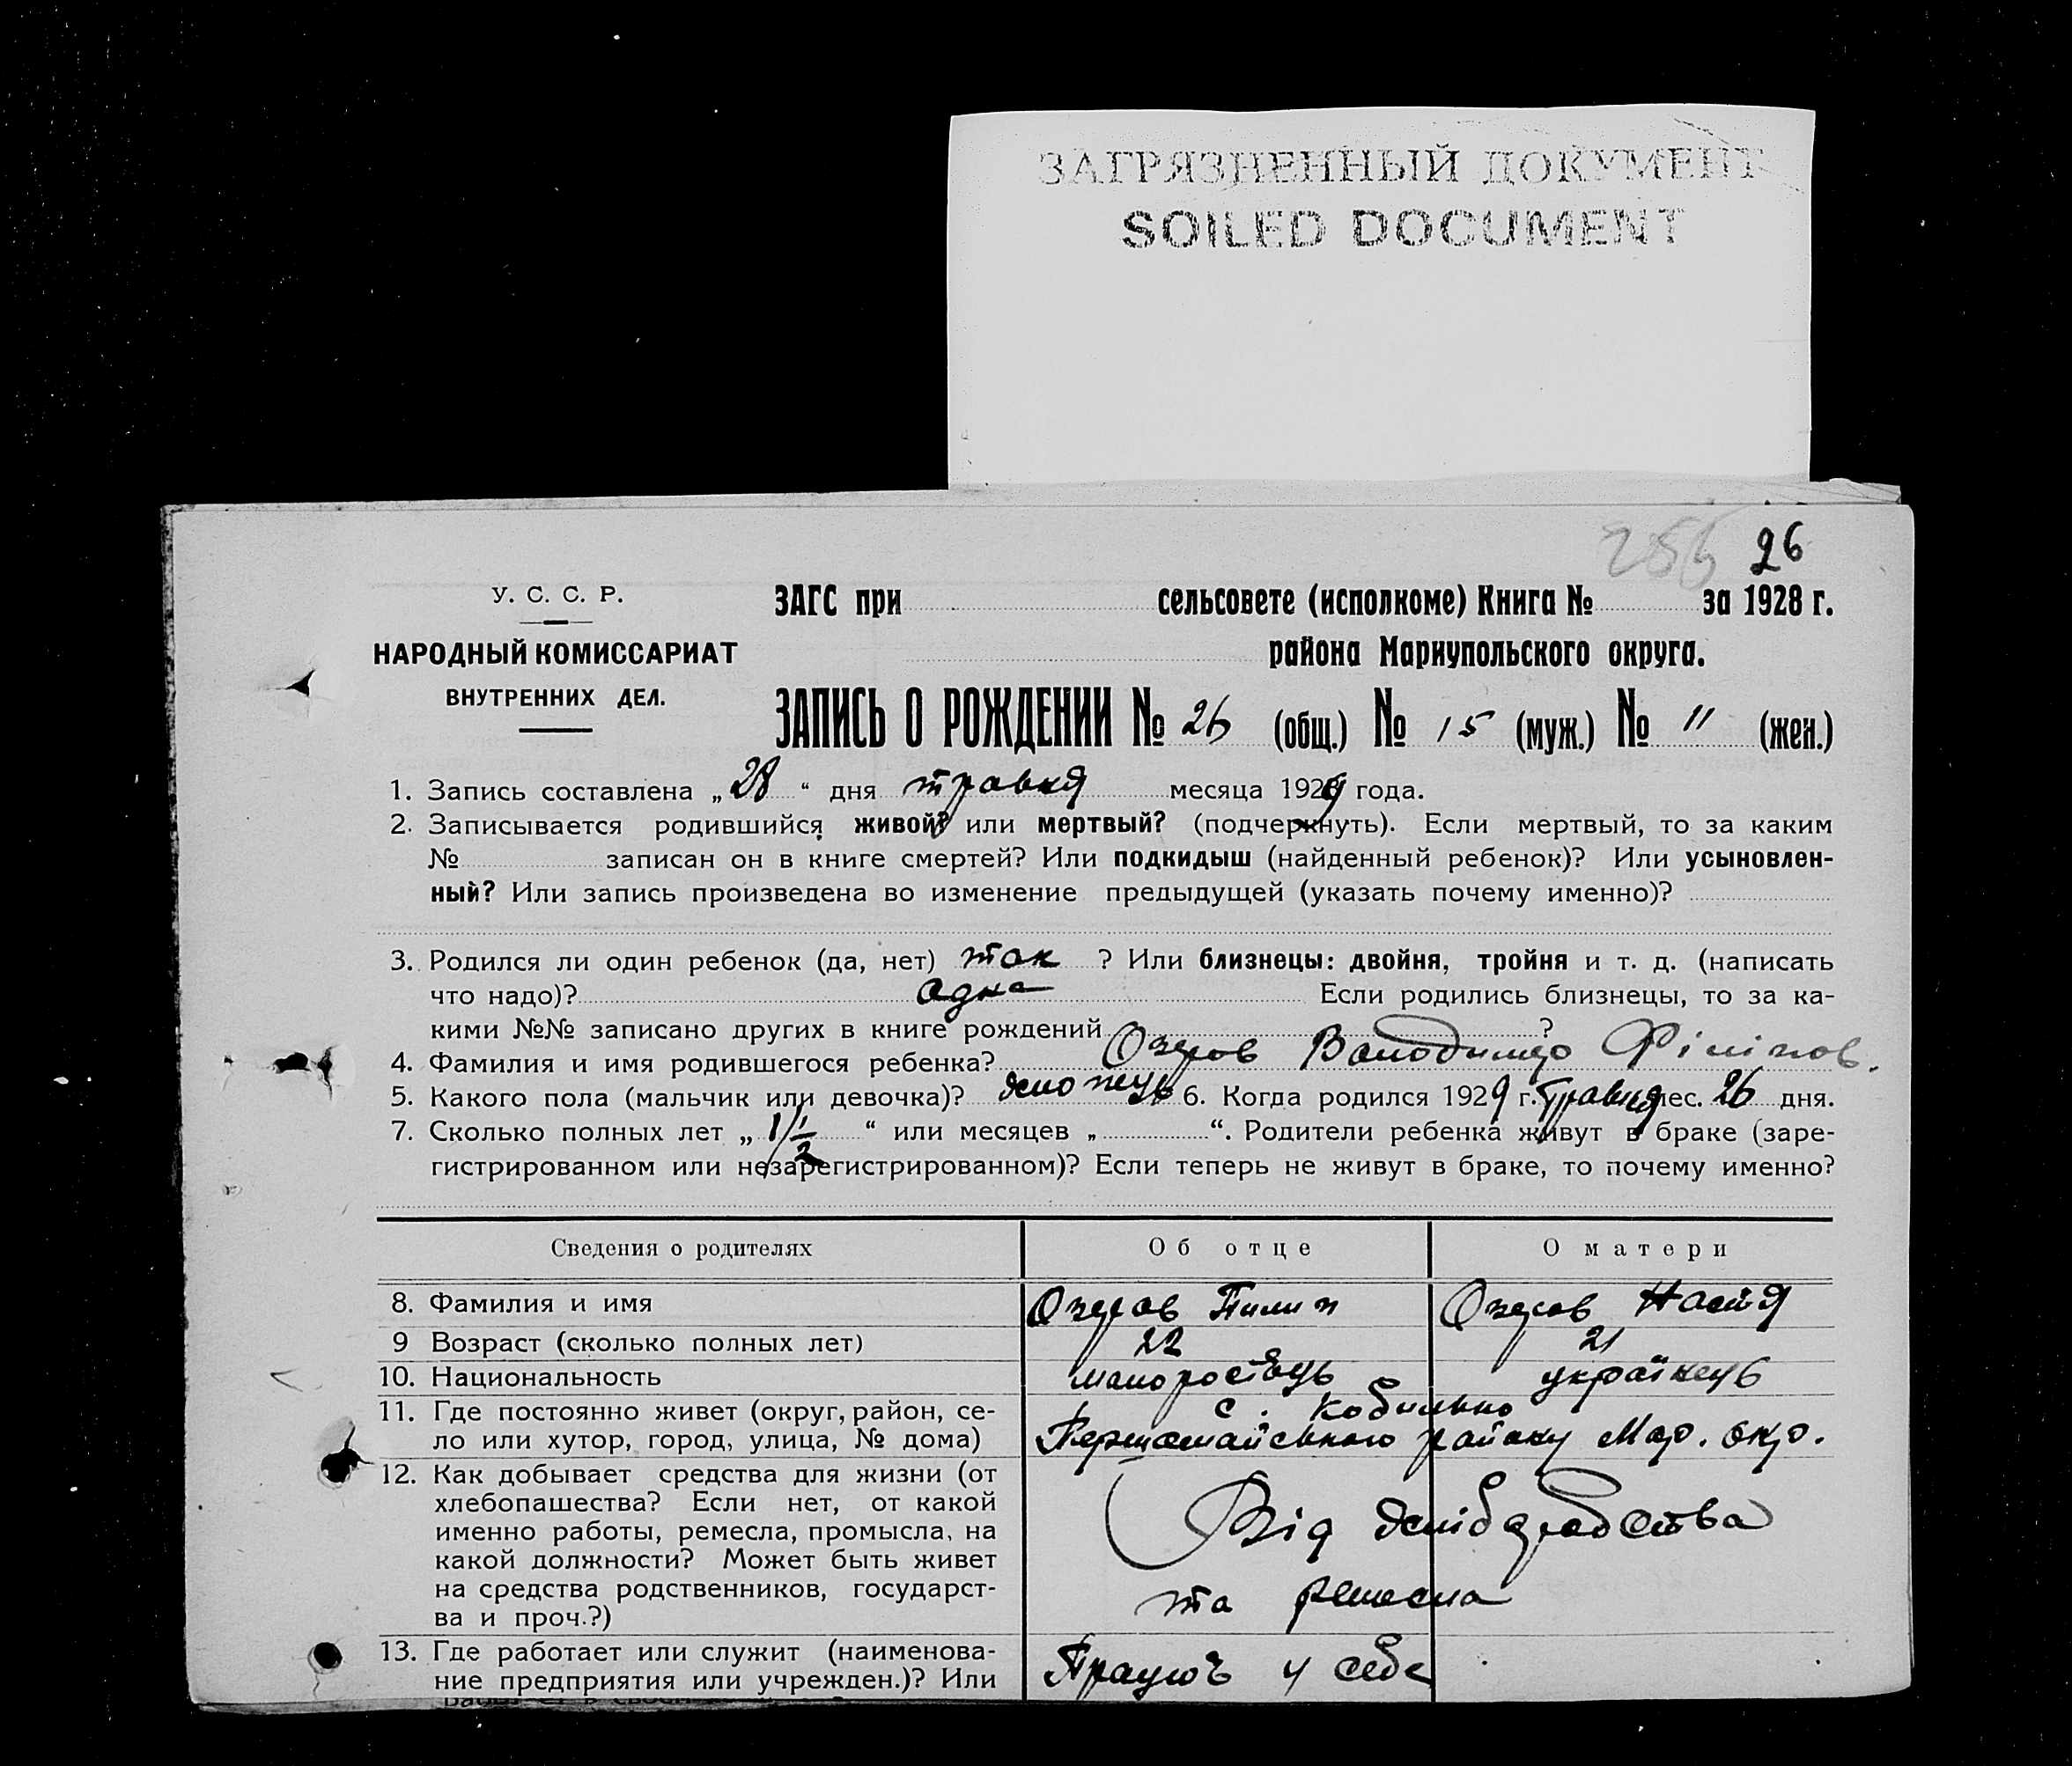 ЗАГРЯЗНЕННЫЙ ДОКУМЕНТ
SOILED DOCUMENT
256 26
У. С. С. Р.
ЗАГС при сельсовете (исполкоме) Книга № за 1928 г.
НАРОДНЫЙ КОМИССАРИАТ
района Мариупольского округа.
ВНУТРЕННИХ ДЕЛ.
ЗАПИСЬ О РОЖДЕНИИ № 26 (общ.) № 15 (муж.) № 11 (жен.)
1. Запись составлена „28“ дня травня месяца 1929 года.
2. Записывается родившийся живой? или мертвый? (подчеркнуть). Если мертвый, то за каким
№ записан он в книге смертей? Или подкидыш (найденный ребенок)? Или усыновлен-
ный? Или запись произведена во изменение предыдущей (указать почему именно)?
3. Родился ли один ребенок (да, нет) так ? Или близнецы: двойня, тройня и т. д. (написать
что надо)? одна Если родились близнецы, то за ка-
кими №№ записано других в книге рождений ?
4. Фамилия и имя родившегося ребенка? Озеров Володимер Філіпов.
5. Какого пола (мальчик или девочка)? 6. Когда родился 1929 г. травня мес. 26 дня.
7. Сколько полных лет „1 1/2“ или месяцев „ “. Родители ребенка живут в браке (заре-
гистрированном или незарегистрированном)? Если теперь не живут в браке, то почему именно?
Сведения о родителях Об отце О матери
8. Фамилия и имя Озеров Пилип Озеров Настя
9 Возраст (сколько полных лет) 22 21
10. Национальность українець
11. Где постоянно живет (округ, район, се- с. Кобильно
ло или хутор, город, улица, № дома) Першомайського району Мар. окр.
12. Как добывает средства для жизни (от
хлебопашества? Если нет, от какой
именно работы, ремесла, промысла, на Від хлібаробства
какой должности? Может быть живет
на средства родственников, государст- та ремесла
ва и проч.?)
13. Где работает или служит (наименова-
ние предприятия или учрежден.)? Или Працює у себе